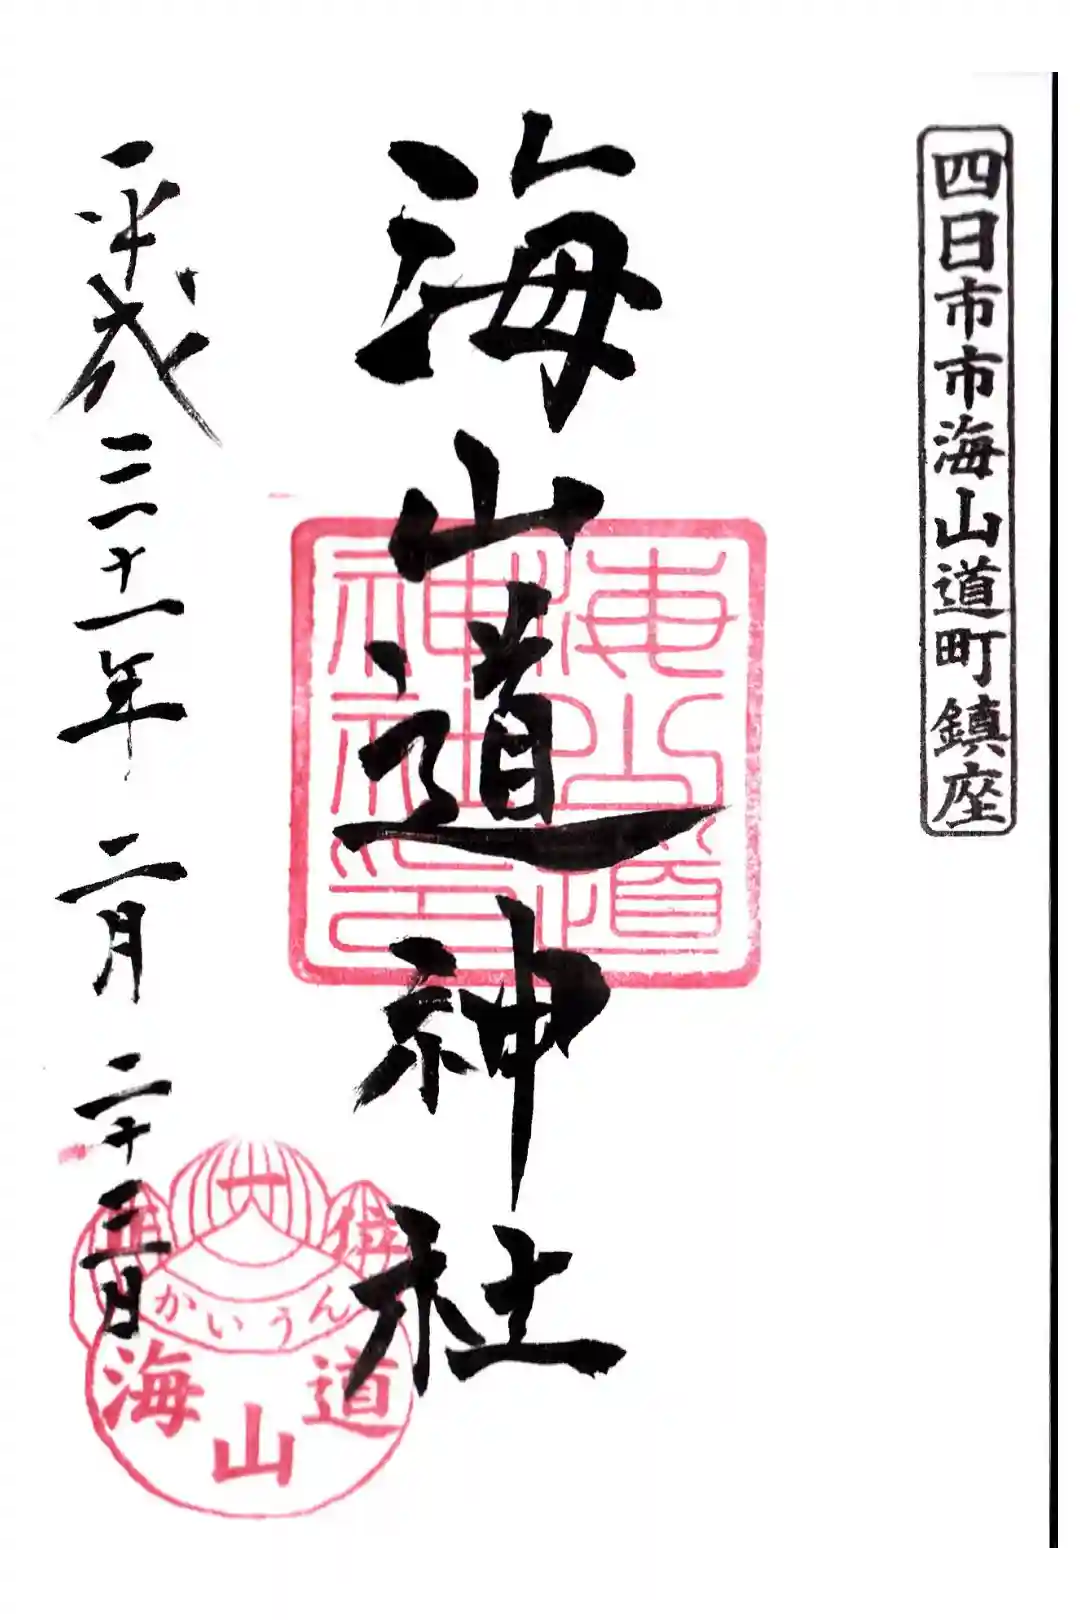 四日市市海山道町鎮座
海山道神社
海山道神社印
平成三十一年 二月 二十三日
大
かいうん
海山道